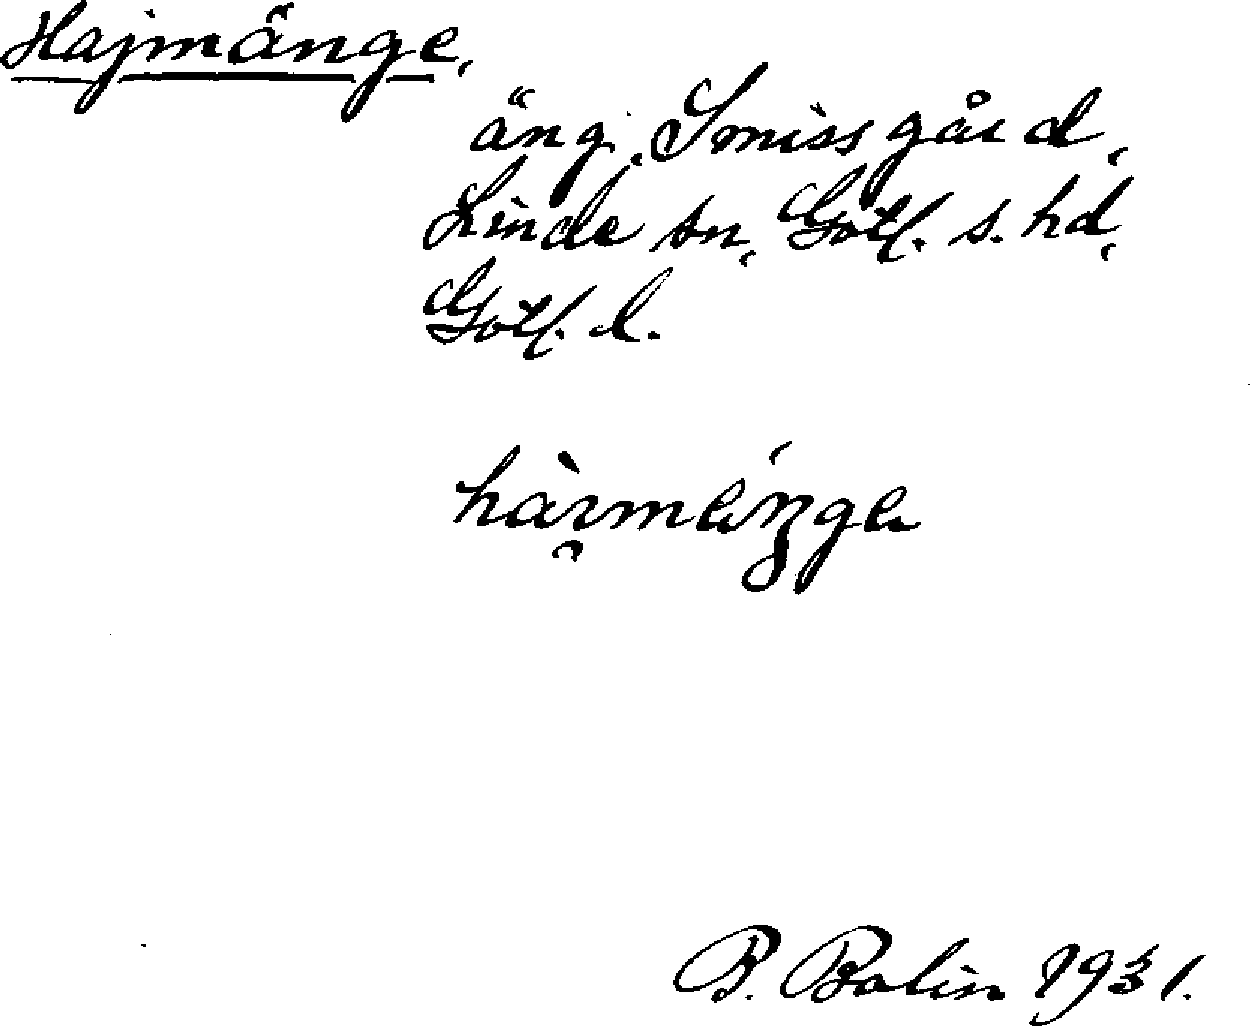 Hajmänge,
äng, Smissgård,
Linde sn, Gotl. s. hd,
Gotl. l.
B. Bolin 1931.